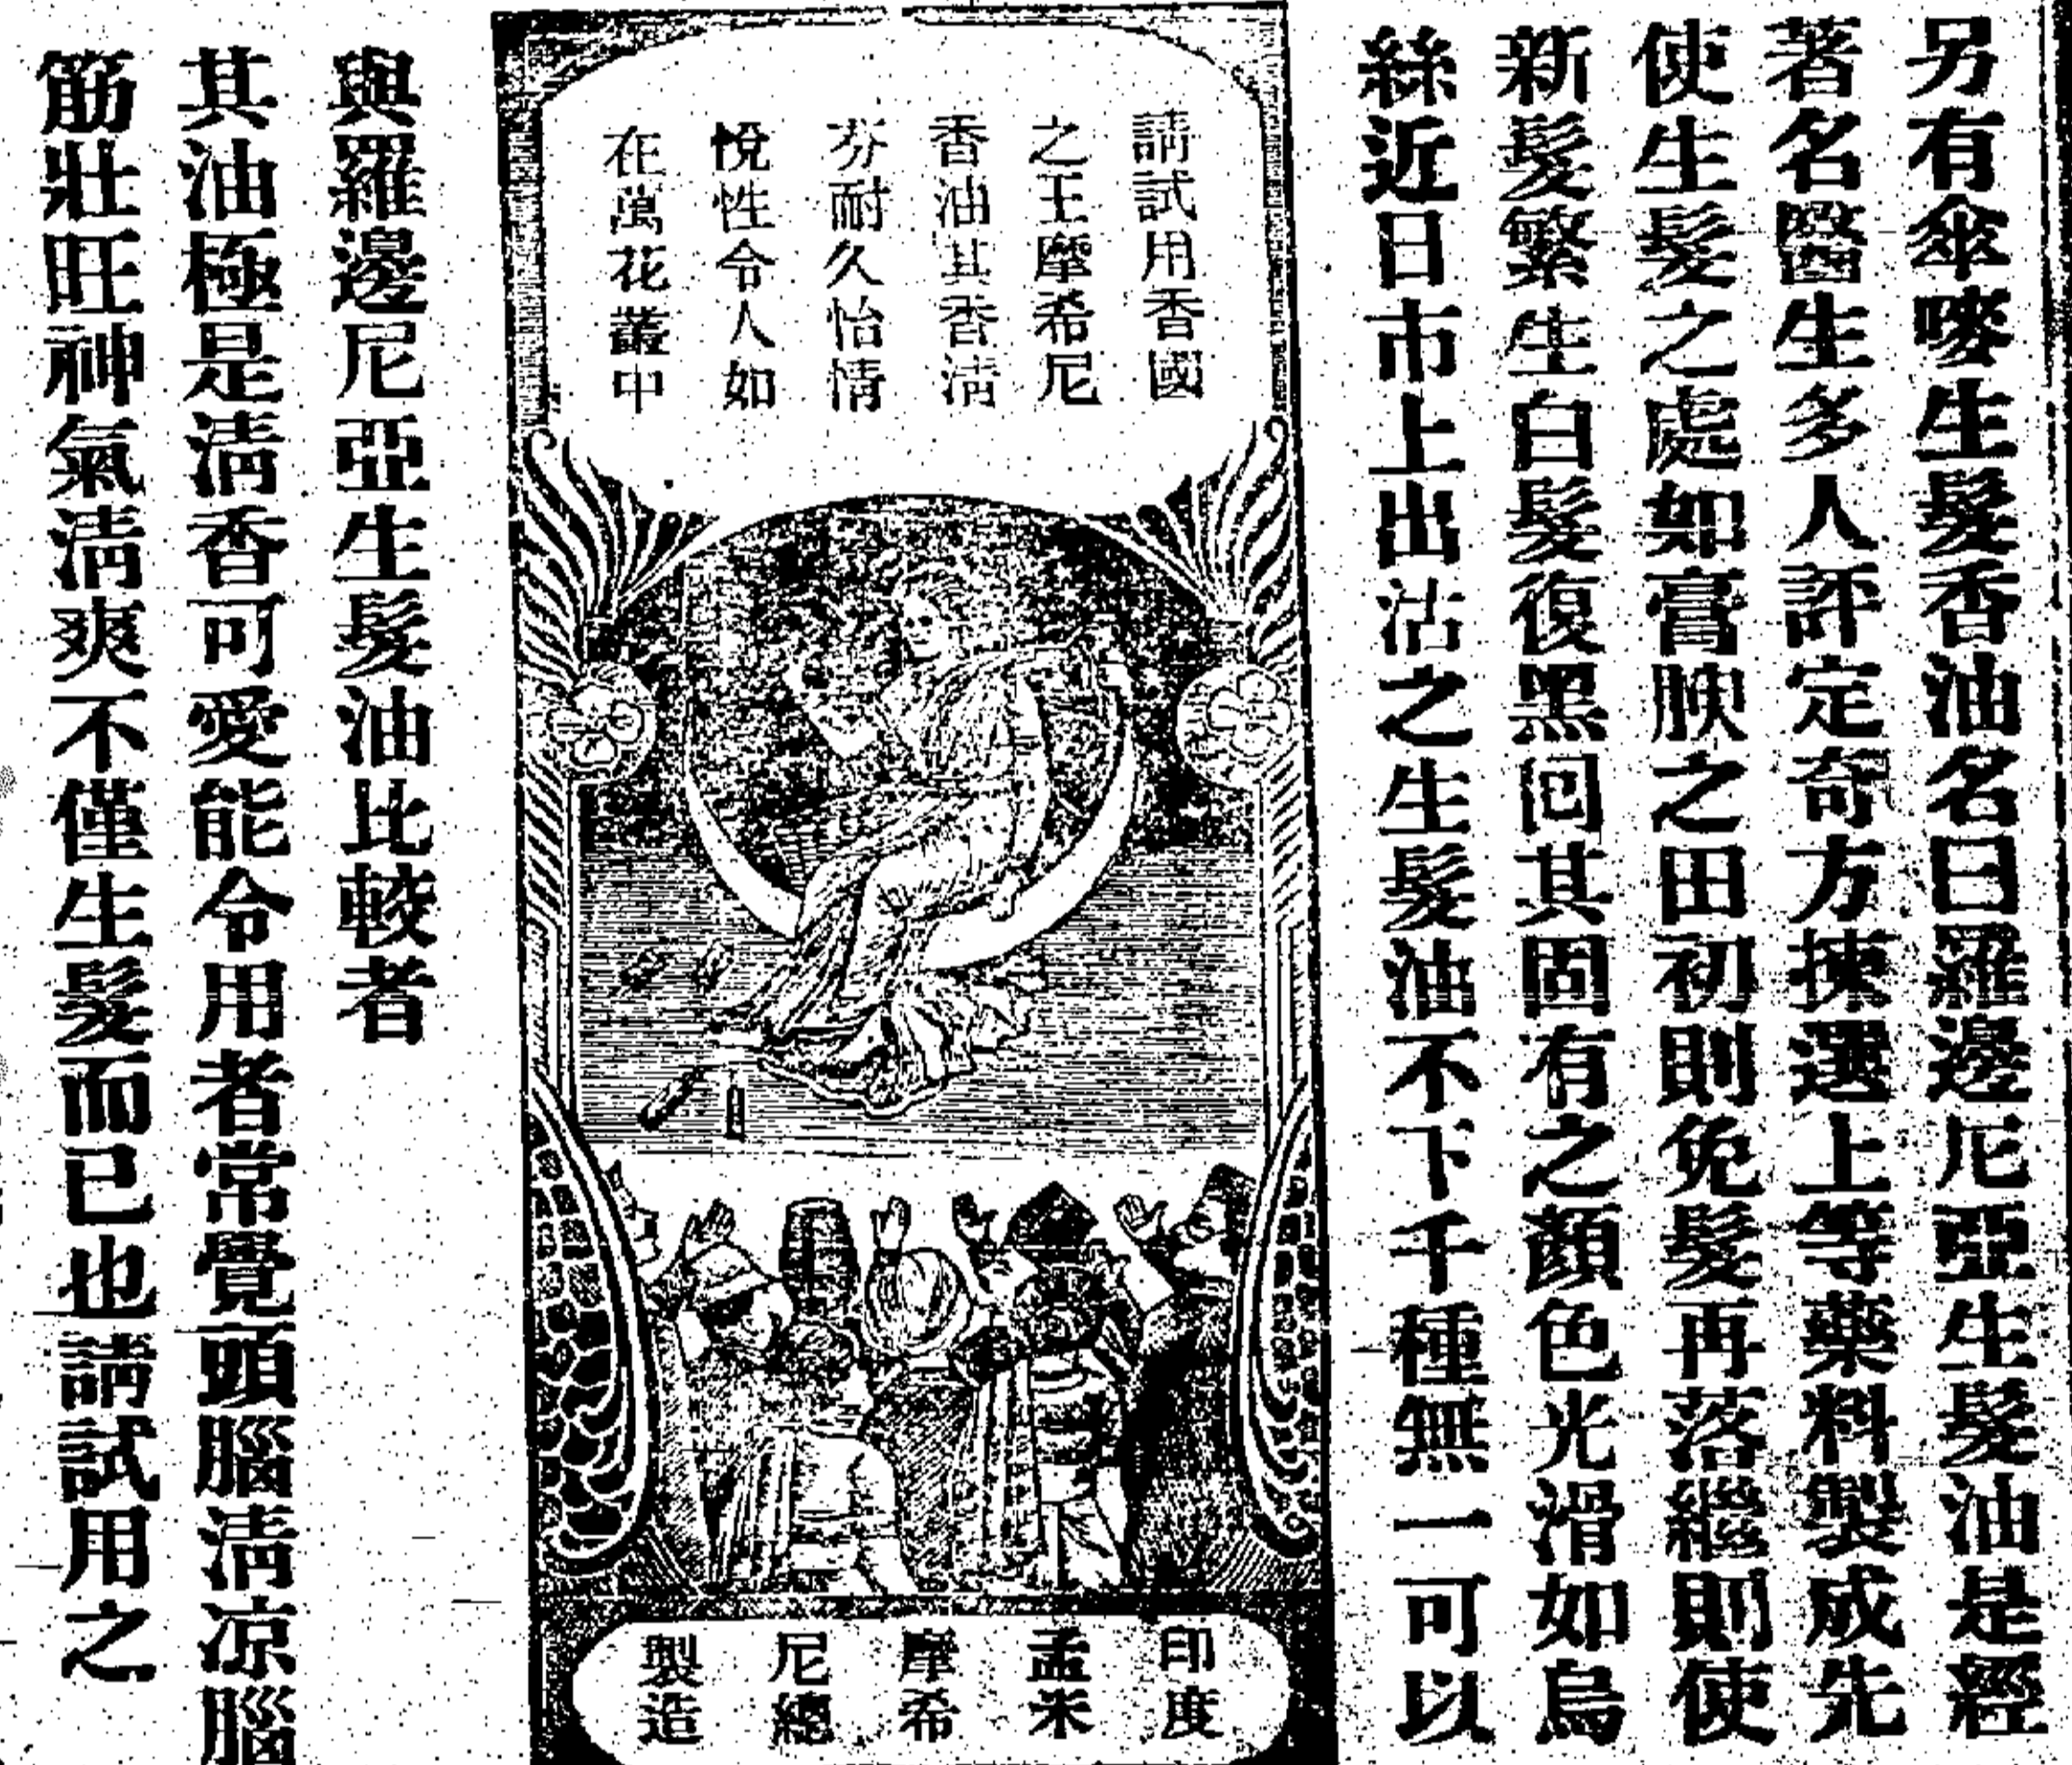 另有傘嘜生髮香油名曰羅邊尼亞生髮油是經
著名醫生多人評定奇方揀選上等藥料製成先
使生髮之處如膏腴之田初則免髮再落繼則使
新髮繁生白髮復黑囘其固有之顏色光滑如烏
絲近日市上出沽之生髮油不下千種無一可以
請試用香國
之王摩希尼
香油其香清
芬耐久怡情
悅性令人如
在萬花叢中
印度
孟米
摩希
尼總
製造
與羅邊尼亞生髮油比較者
其油極是清香可愛能令用者常覺頭腦清凉腦
筋壯旺神氣清爽不僅生髮而已也請試用之